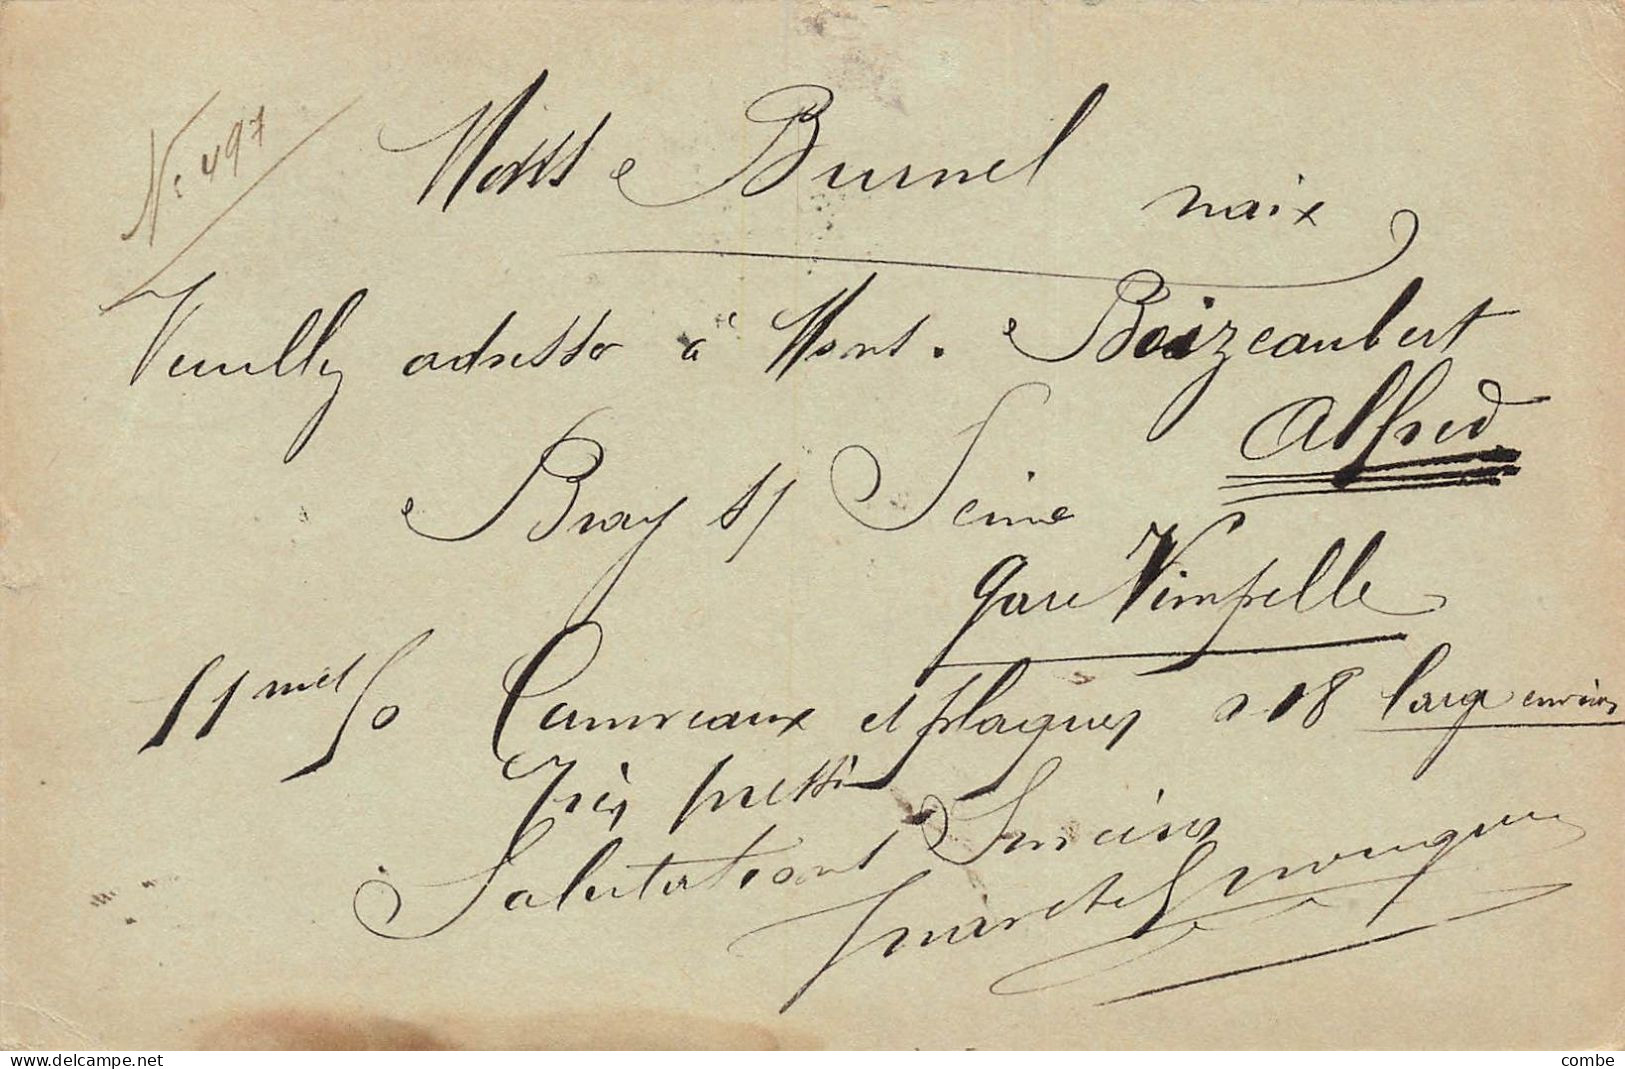 N: 497
Monss Brunel
naix
Veuilly adresser à Mons. Boizeaubert
Alfred
Bray s/ Seine
gare Vimpelle
11 met 50 Cannreaux et plaques a 18 large environ
Très pressé
Salutations Sincères
delcampe.net
combe